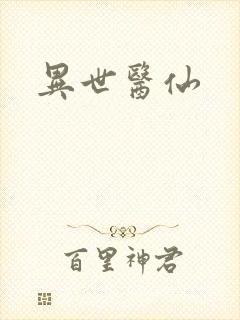 異世醫仙
百里神君